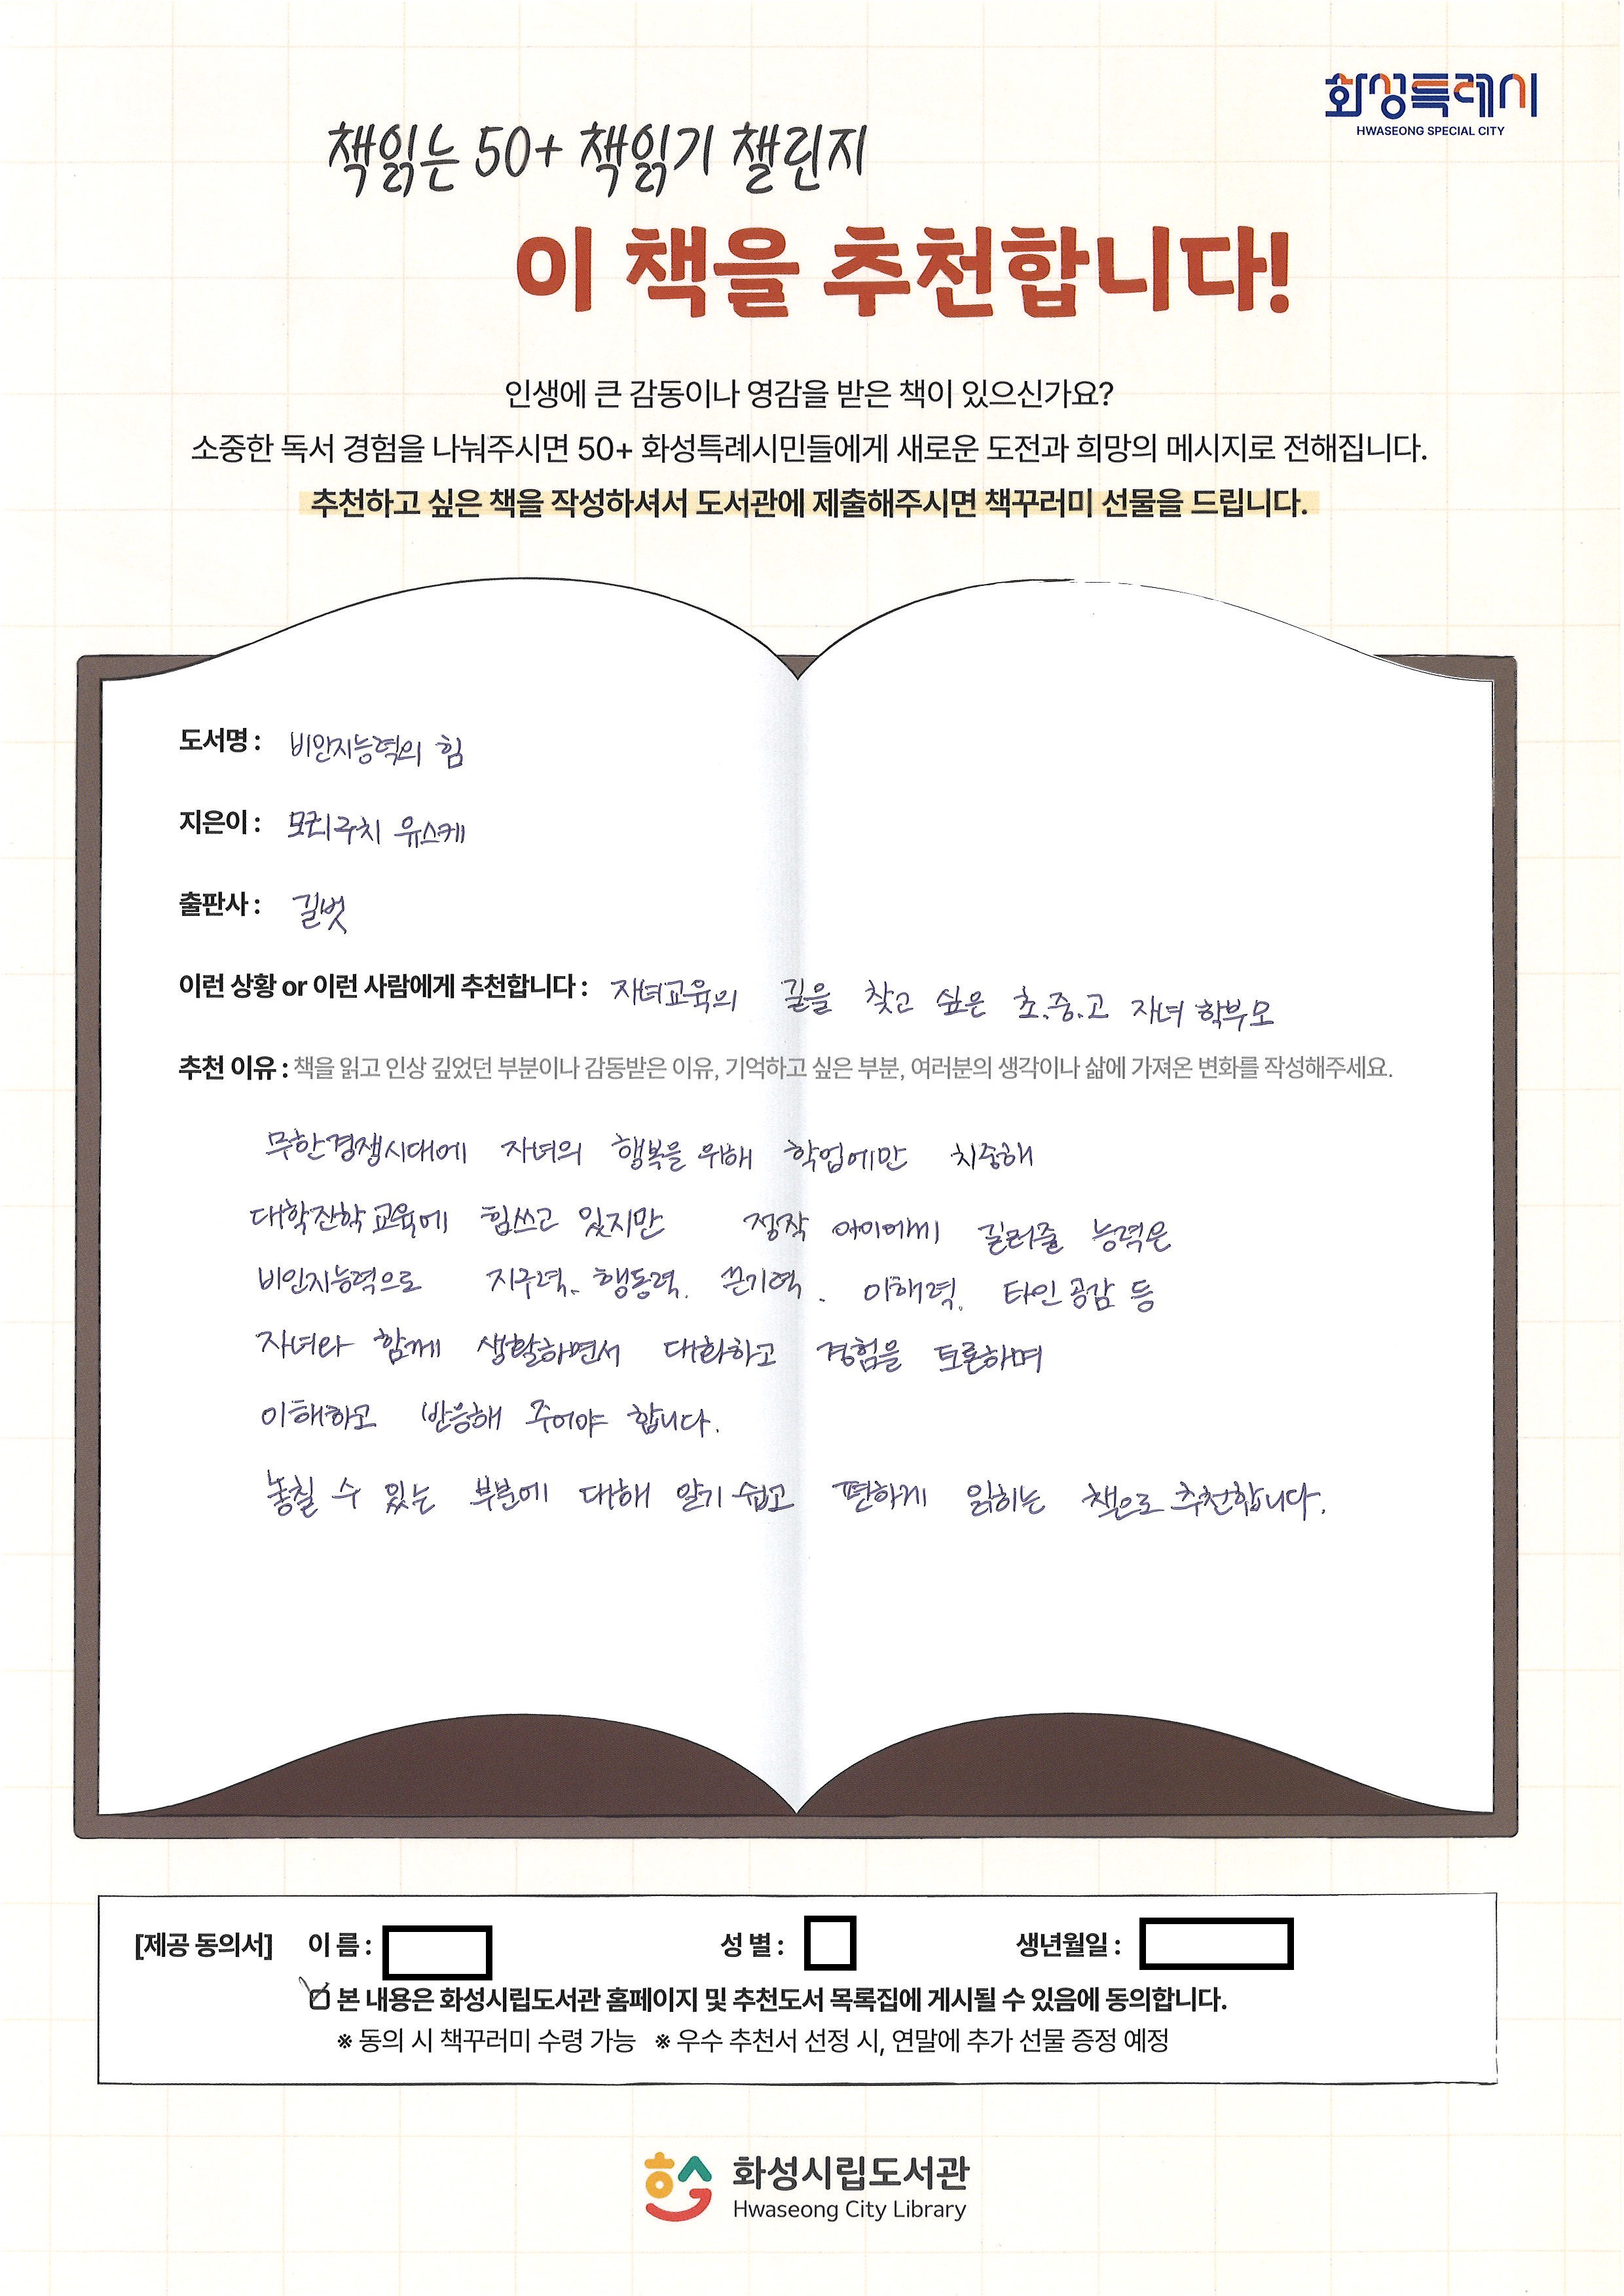 화성특례시
HWASEONG SPECIAL CITY
책읽는 50+ 책읽기 챌린지
이 책을 추천합니다!
인생에 큰 감동이나 영감을 받은 책이 있으신가요?
소중한 독서 경험을 나눠주시면 50+ 화성특례시민들에게 새로운 도전과 희망의 메시지로 전해집니다.
추천하고 싶은 책을 작성하셔서 도서관에 제출해주시면 책꾸러미 선물을 드립니다.
도서명 : 비인지능력의 힘
지은이 : 모리구치 유스케
출판사 : 길벗
이런 상황 or 이런 사람에게 추천합니다 : 자녀교육의 길을 찾고 싶은 초.중.고 자녀 학부모
추천 이유 : 책을 읽고 인상 깊었던 부분이나 감동받은 이유, 기억하고 싶은 부분, 여러분의 생각이나 삶에 가져온 변화를 작성해주세요.
무한경쟁시대에 자녀의 행복을 위해 학업에만 치중해
대학진학 교육에 힘쓰고 있지만 정작 아이에게 길러줄 능력은
비인지능력으로 지구력. 행동력. 끈기력. 이해력. 타인 공감 등
자녀와 함께 생활하면서 대화하고 경험을 토론하며
이해하고 반응해 주어야 합니다.
놓칠 수 있는 부분에 대해 알기 쉽고 편하게 읽히는 책으로 추천합니다.
[제공 동의서] 이 름 : 성 별 : 생년월일 :
본 내용은 화성시립도서관 홈페이지 및 추천도서 목록집에 게시될 수 있음에 동의합니다.
※ 동의 시 책꾸러미 수령 가능 ※ 우수 추천서 선정 시, 연말에 추가 선물 증정 예정
화성시립도서관
Hwaseong City Library